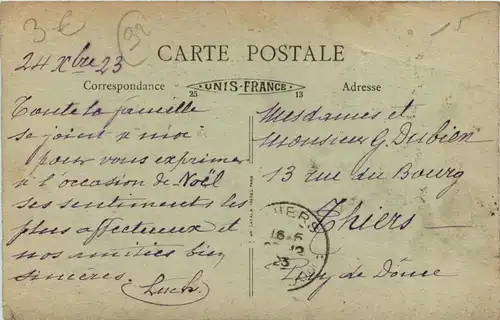 3 €
92
15
24 Xbre 23
CARTE POSTALE
Correspondance
UNIS-FRANCE
25
13
Adresse
Toute la famille
se joint à moi
pour vous exprimer
à l'occasion de Noël
ses sentiments les
plus affectueux et
nos amitiés bien
sincères.
Mesdames et
Monsieur G. Dubien
13 rue du Bourg
Thiers
Puy de Dôme
THIERS
16
23